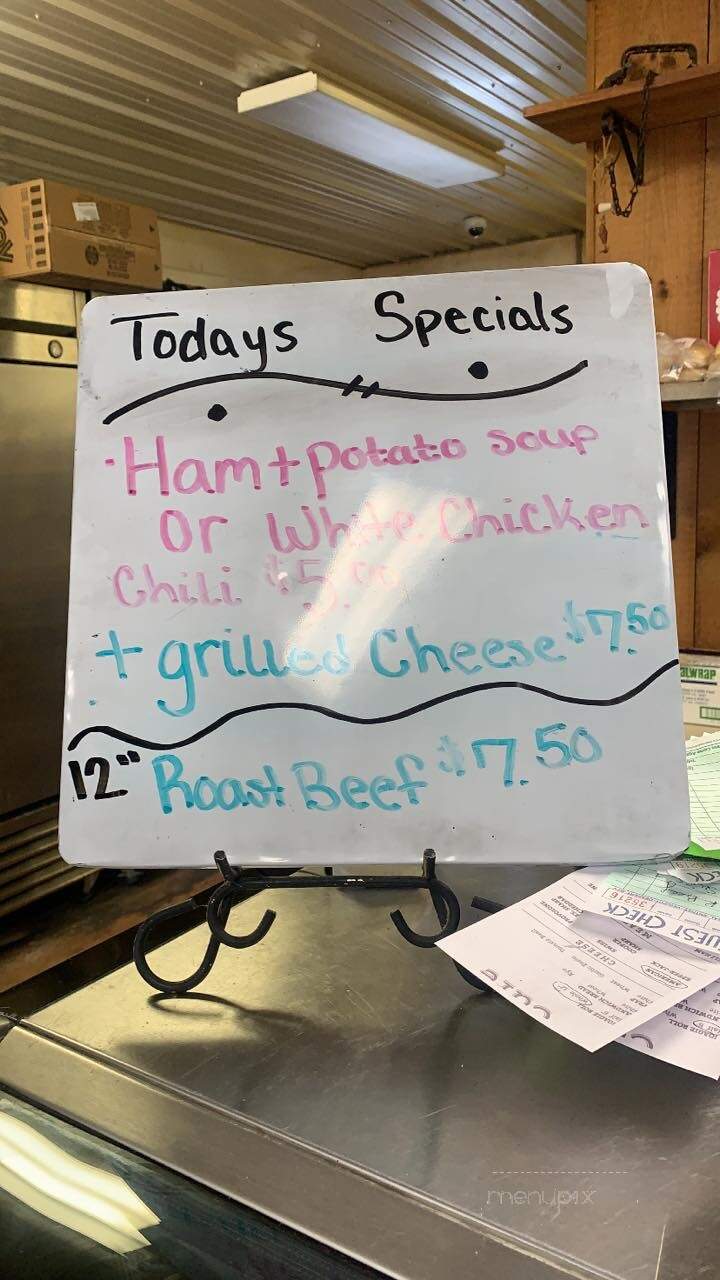 Todays Specials
·Ham + Potato soup
Or White Chicken
Chili $5.00
+ grilled Cheese $7.50
12" Roast Beef $7.50
ALWRAP
UEST CHECK
38216
CHEESE
AMERICAN
menupix